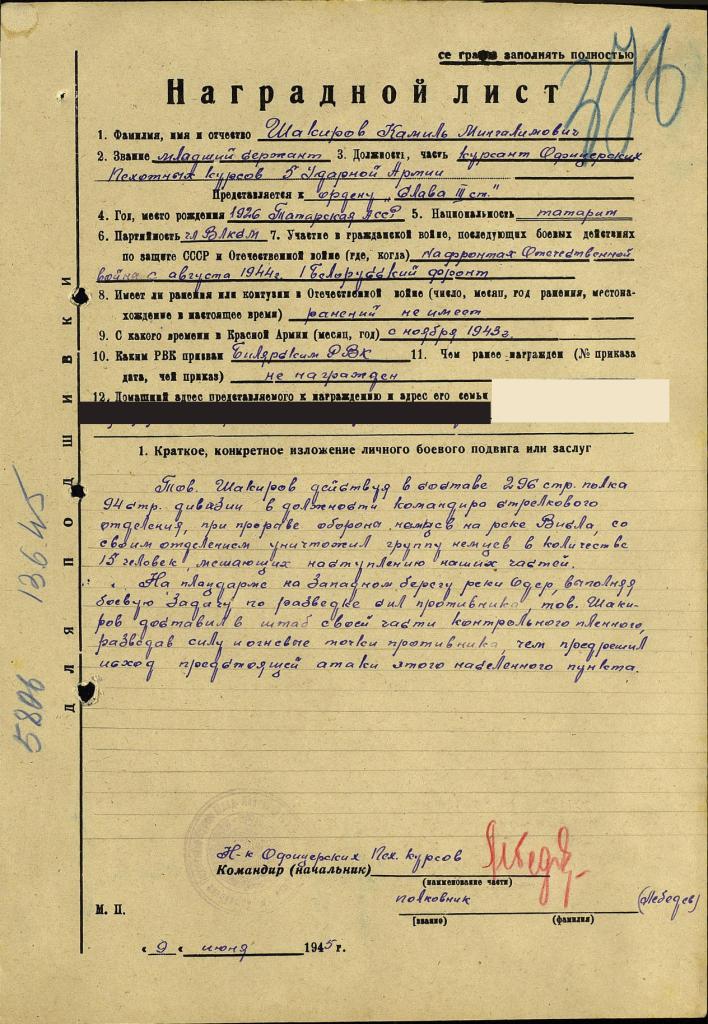 се графы заполнять полностью
376
Наградной лист
1. Фамилия, имя и отчество Шакиров Камиль Мингалимович
2. Звание младший сержант 3. Должность, часть курсант Офицерских
Пехотных курсов 5 Ударной Армии
Представляется к ордену „Слава III ст."
4. Год, место рождения 1926 Татарская АССР 5. Национальность татарин
6. Партийность чл ВЛКСМ 7. Участие в гражданской войне, последующих боевых действиях
по защите СССР и Отечественной войне (где, когда) на фронтах Отечественной
война с августа 1944г. 1 Белорусский фронт
8. Имеет ли ранения или контузии в Отечественной войне (число, месяц, год ранения, местона-
хождение в настоящее время) ранений не имеет
9. С какого времени в Красной Армии (месяц, год) с ноября 1943г.
10. Каким РВК призван Билярским РВК 11. Чем ранее награжден (№ приказа
дата, чей приказ) не награжден
12. Домашний адрес представляемого к награждению и адрес его семьи
1. Краткое, конкретное изложение личного боевого подвига или заслуг
Тов. Шакиров действуя в составе 296 стр. полка
94 стр. дивизии в должности командира стрелкового
отделения, при прорыве оборона немцев на реке Висла, со
своим отделением уничтожил группу немцев в количестве
15 человек, мешающих наступлению наших частей.
На плацдарме на Западном берегу реки Одер, выполняя
боевую задачу по разведке сил противника, тов. Шаки-
ров доставил в штаб своей части контрольного пленного,
разведав силу и огневые точки противника, чем предрешил
исход предстоящей атаки этого населенного пункта.
Н-к Офицерских Пех. курсов
Командир (начальник)
(наименование части)
полковник (Лебедев)
М. П.
(звание) (фамилия)
„9" июня 1945 г.
ДЛЯ ПОДШИВКИ
5806 13.6.45